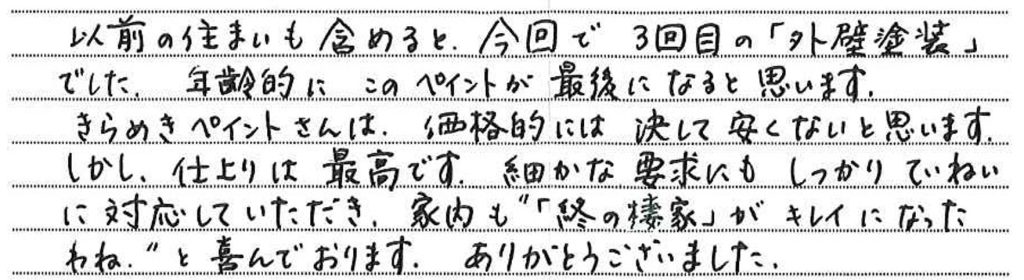 以前の住まいも含めると、今回で 3回目の「外壁塗装」
でした。 年齢的に このペイントが 最後になると思います。
きらめきペイントさんは、価格的には 決して安くないと思います。
しかし、仕上りは 最高です。 細かな要求にも しっかりていねい
に対応していただき、家内も“「終の棲家」が キレイになった
わね.”と喜んでおります。 ありがとうございました。